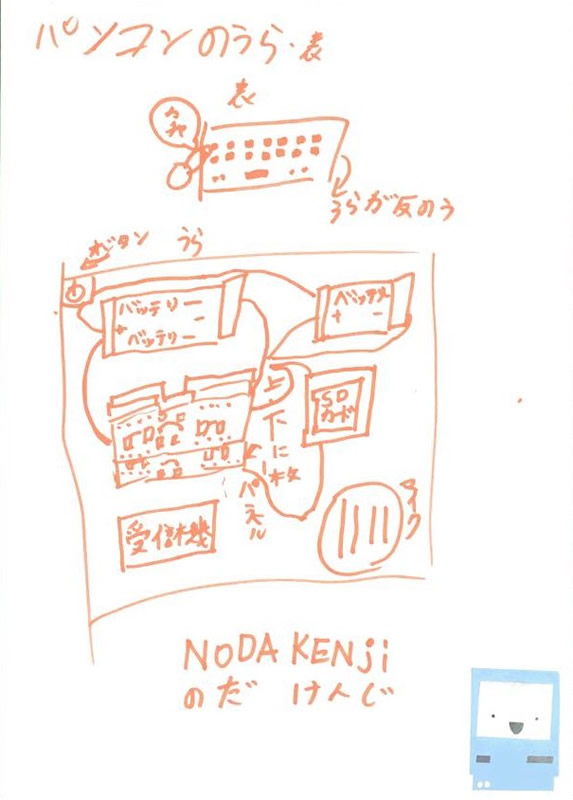 パソコンのうら・表
表
うらが反のう
ボタン
うら
バッテリー
+ −
バッテリー
バッテリ
+ −
SD
カード
上・下に
枚
パネル
マイク
受信機
NODA KENji
のだ けんじ